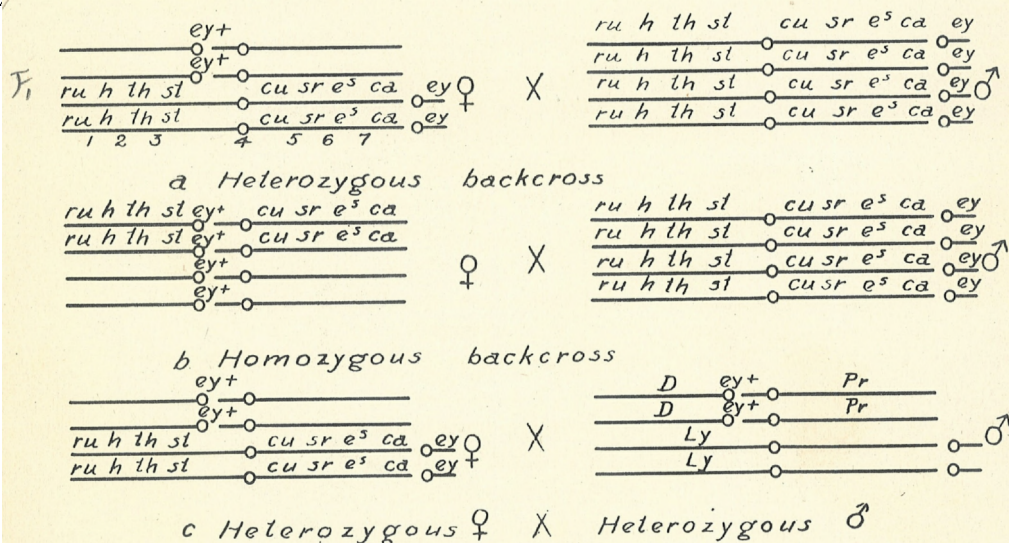 ey+ ru h th st cu sr eˢ ca ey
ey+ ru h th st cu sr eˢ ca ey
F₁ ru h th st cu sr eˢ ca ey ♀ X ru h th st cu sr eˢ ca ey ♂
ru h th st cu sr eˢ ca ey ru h th st cu sr eˢ ca ey
1 2 3 4 5 6 7
a Heterozygous backcross
ru h th st ey+ cu sr eˢ ca ru h th st cu sr eˢ ca ey
ru h th st ey+ cu sr eˢ ca ru h th st cu sr eˢ ca ey
ey+ ♀ X ru h th st cu sr eˢ ca ey ♂
ey+ ru h th st cu sr eˢ ca ey
b Homozygous backcross
ey+ D ey+ Pr
ey+ D ey+ Pr
ru h th st cu sr eˢ ca ey ♀ X Ly ♂
ru h th st cu sr eˢ ca ey Ly
c Heterozygous ♀ X Heterozygous ♂